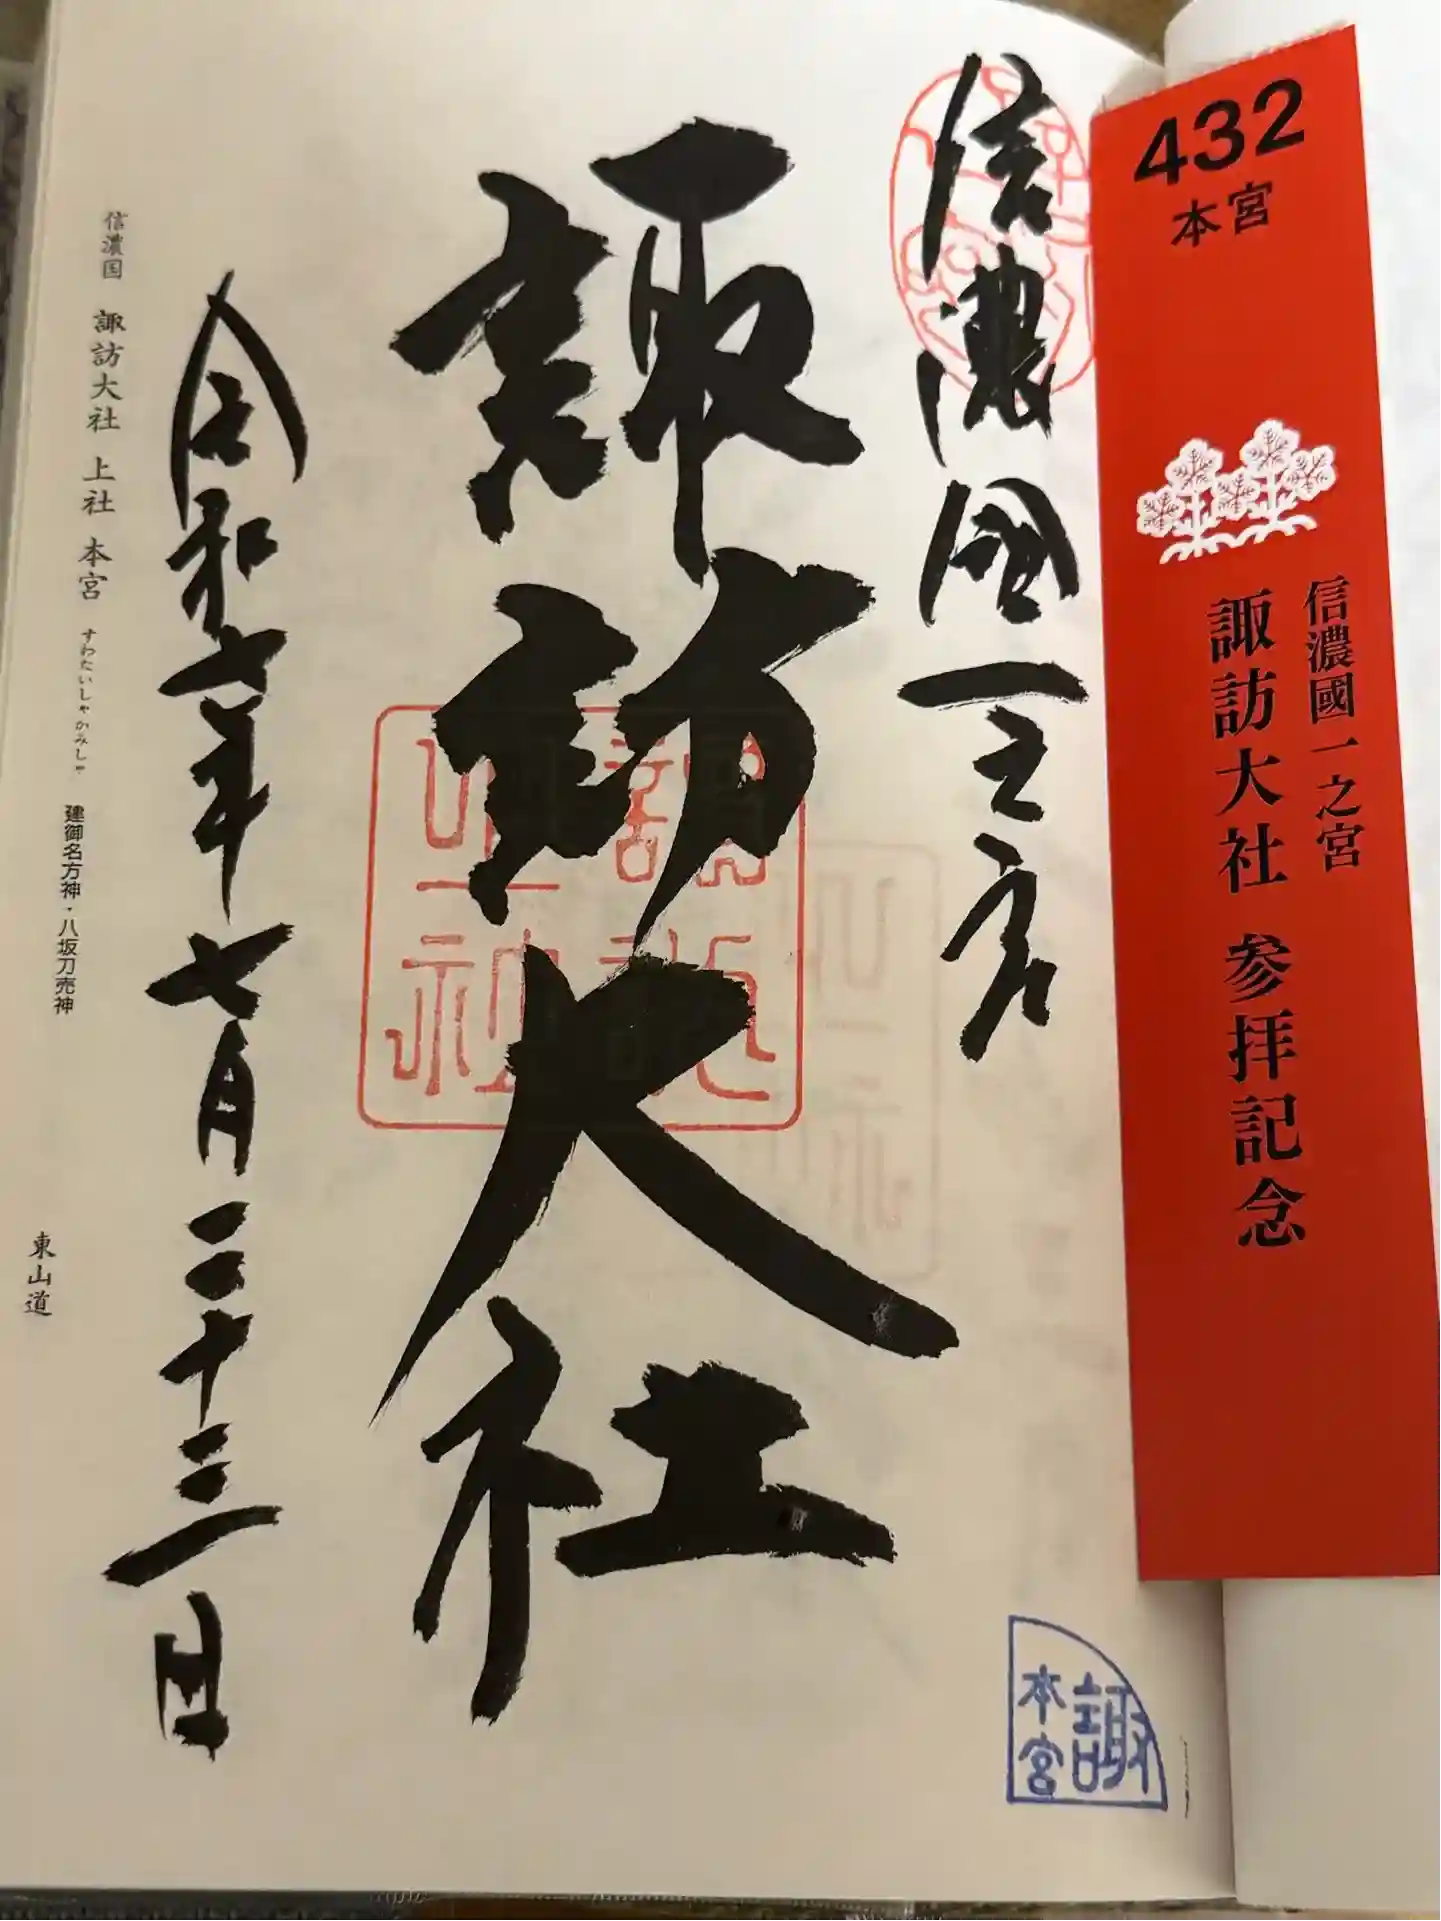 432
本宮
信濃國一之宮
諏訪大社 参拝記念
信濃國一之宮
諏訪大社
令和七年七月二十三日
信濃国 諏訪大社 上社 本宮 すわたいしゃ かみしゃ 建御名方神・八坂刀売神
東山道
諏
本宮